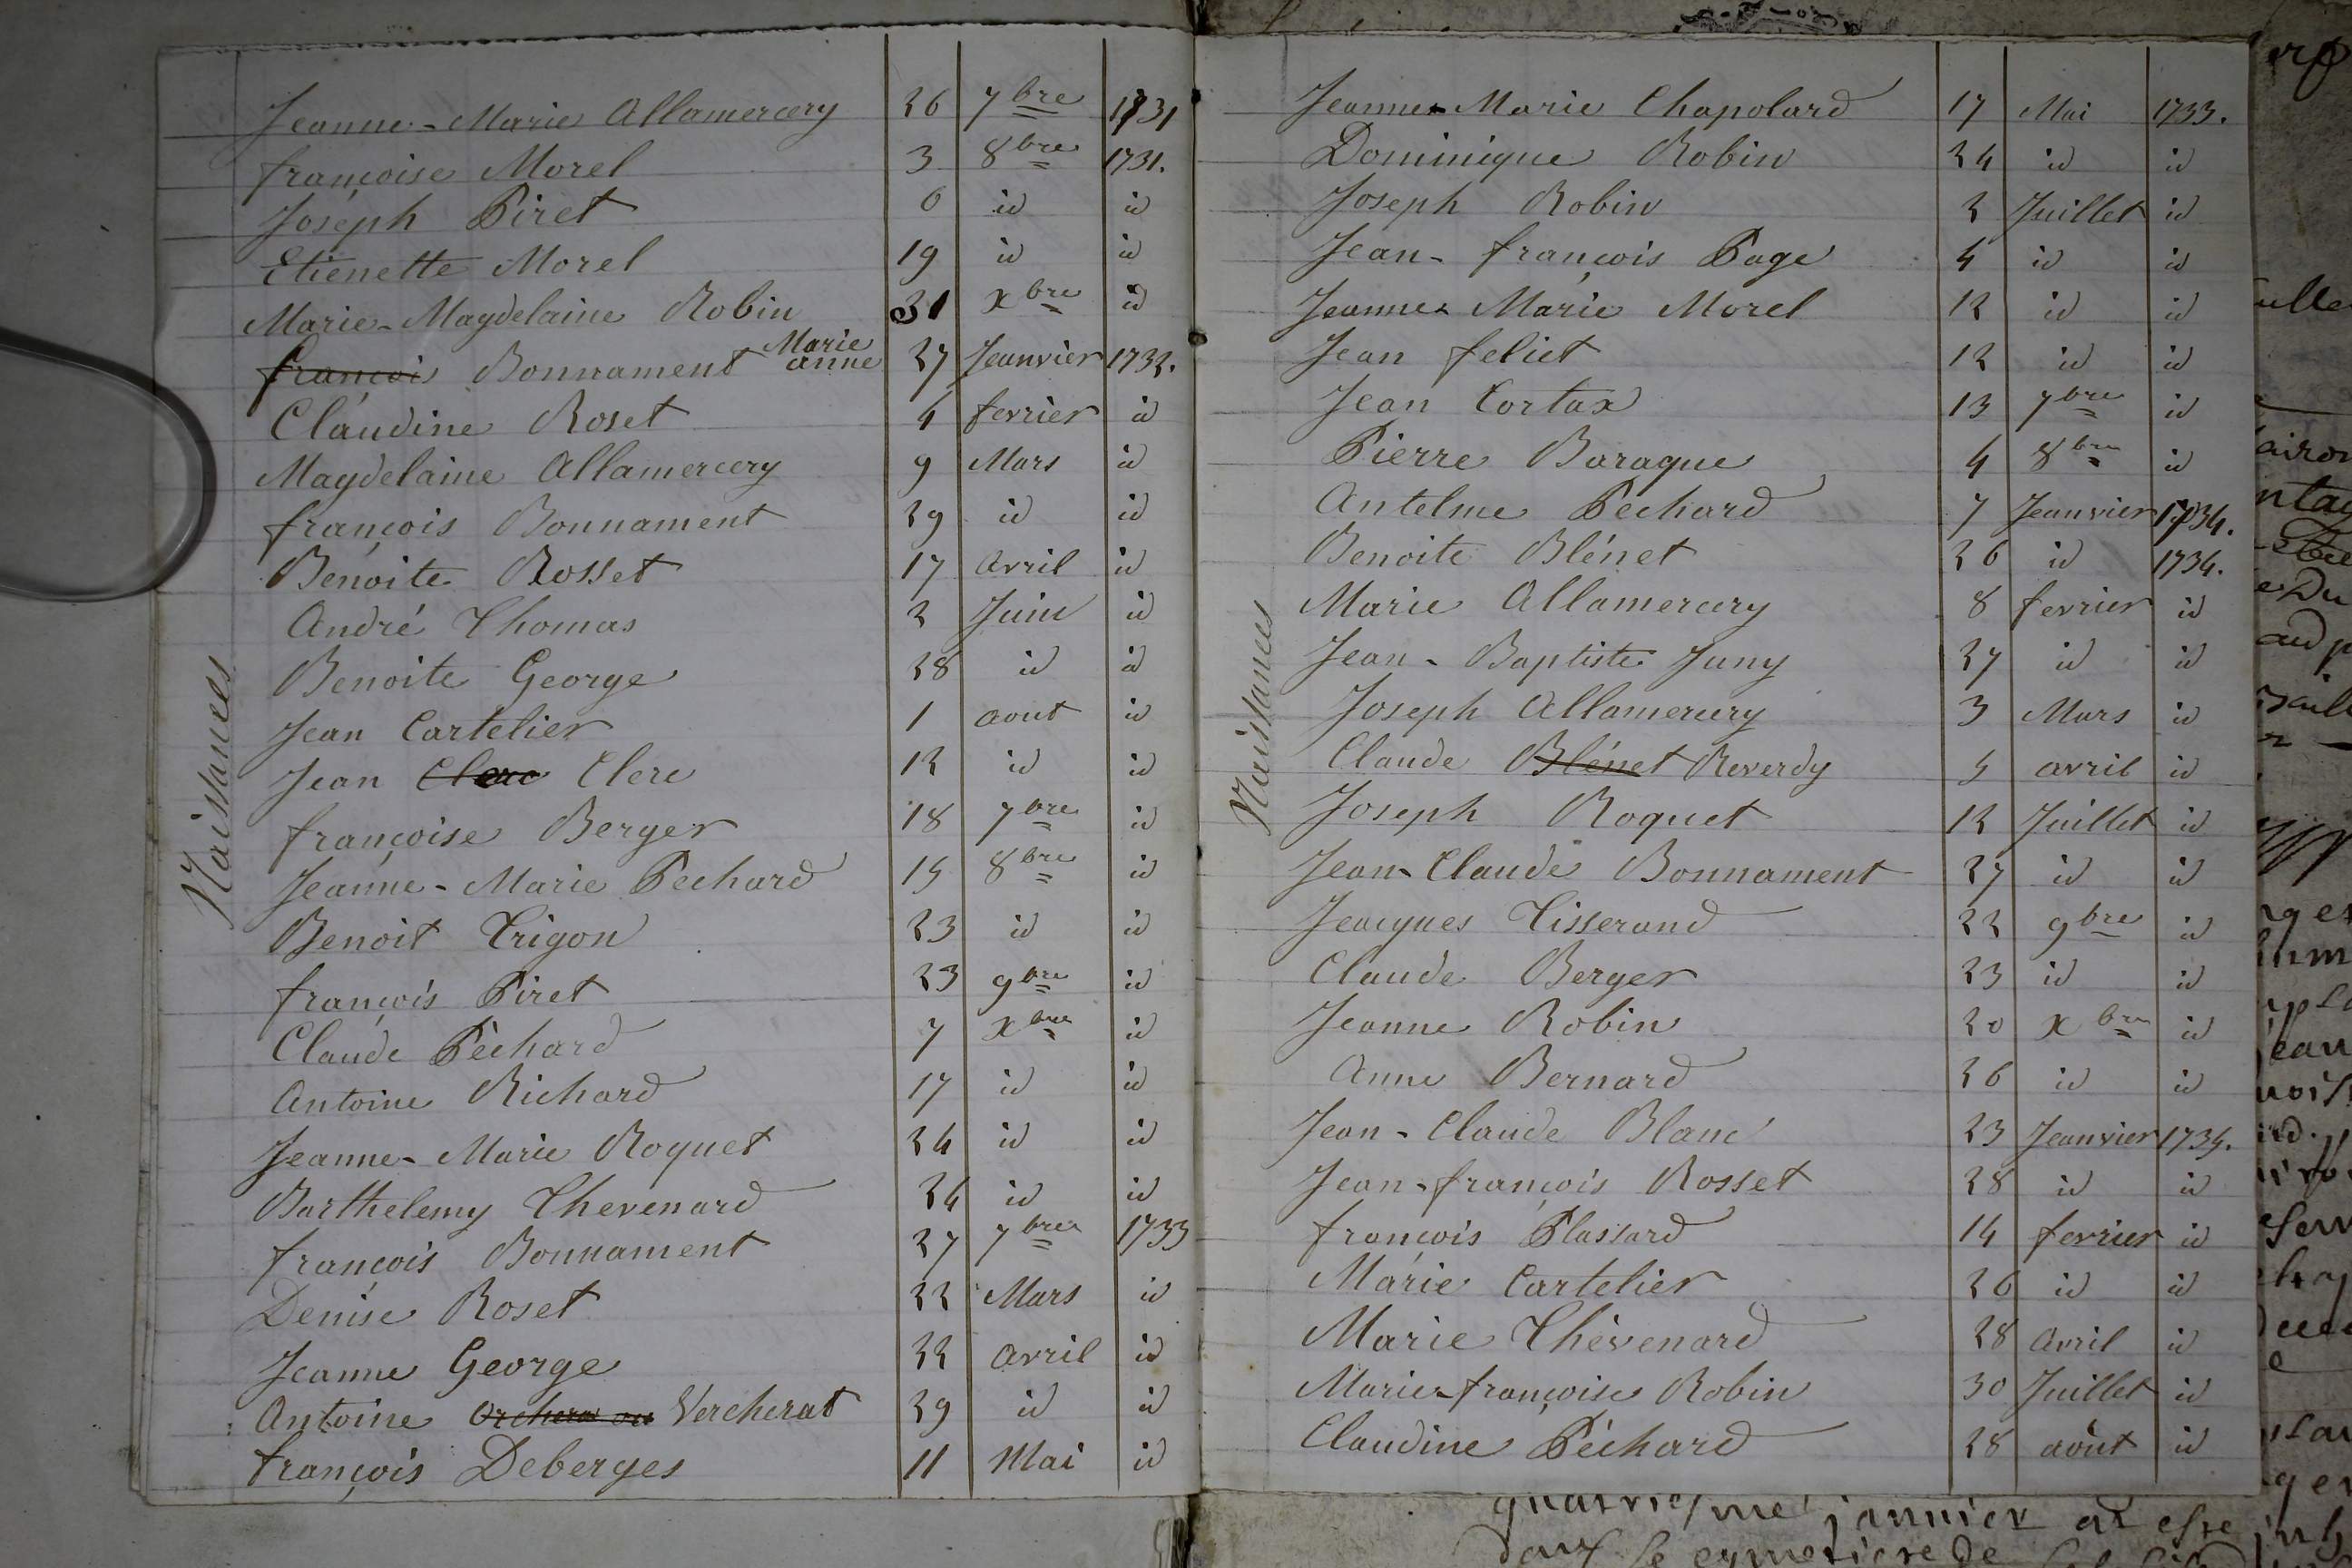 Naissances
Jeanne-Marie Allamercery 26 7bre 1731
françoise Morel 3 8bre 1731.
Joseph Piret 6 id id
Etienette Morel 19 id id
Marie-Magdelaine Robin 31 xbre id
françois Bonnament Marie anne 27 Jeanvier 1732.
Claudine Roset 4 fevrier id
Magdelaine Allamercery 9 Mars id
françois Bonnament 29 id id
Benoite Rosset 17 avril id
André Thomas 2 Juin id
Benoite George 28 id id
Jean Cartelier 1 aout id
Jean Clerc Clerc 12 id id
françoise Berger 18 7bre id
Jeanne-Marie Pechard 15 8bre id
Benoit Trigon 23 id id
françois Piret 23 9bre id
Claude Péchard 7 xbre id
Antoine Richard 17 id id
Jeanne-Marie Roquet 24 id id
Barthelemy Thevenard 24 id id
françois Bonnament 27 7bre 1733
Denise Roset 22 Mars id
Jeanne George 22 avril id
Antoine ou Vercherat 29 id id
françois Deberges 11 Mai id
Naissances
Jeanne-Marie Chapolard 17 Mai 1733.
Dominique Robin 24 id id
Joseph Robin 2 Juillet id
Jean-françois Page 4 id id
Jeanne-Marie Morel 12 id id
Jean feliet 12 id id
Jean Cortax 13 7bre id
Pierre Baraque 4 8bre id
Antelme Pechard 7 Jeanvier 1734.
Benoite Blénet 26 id 1734.
Marie Allamercery 8 fevrier id
Jean-Baptiste Juny 27 id id
Joseph Allamercery 3 Mars id
Claude Blénet Reverdy 5 avril id
Joseph Roquet 12 Juillet id
Jean-Claude Bonnament 27 id id
Jeacques Tisserand 22 9bre id
Claude Berger 23 id id
Jeanne Robin 20 xbre id
Anne Bernard 26 id id
Jean-Claude Blanc 23 Jeanvier 1735.
Jean-françois Rosset 28 id id
françois Plassard 14 fevrier id
Marie Cartelier 26 id id
Marie Thévenard 28 avril id
Marie-françoise Robin 30 Juillet id
Claudine Péchard 28 août id